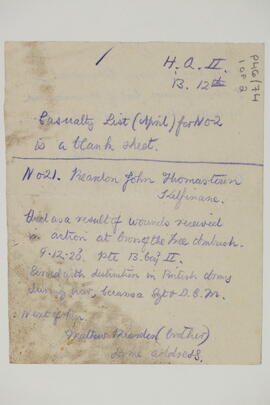 H. Q. II.
B. 12th
P46/74
1 of 2
Casualty List (April) for No 2
is a blank sheet.
No 21. Reardon John Thomastown
Kilfinane.
Died as a result of wounds received
in action at Ambush.
9-12-20. Pte B. Coy II.
Served with distinction in British Army
during war, became Sgt & D.C.M.
Next of Kin.
Mathew Reardon (brother)
same address.